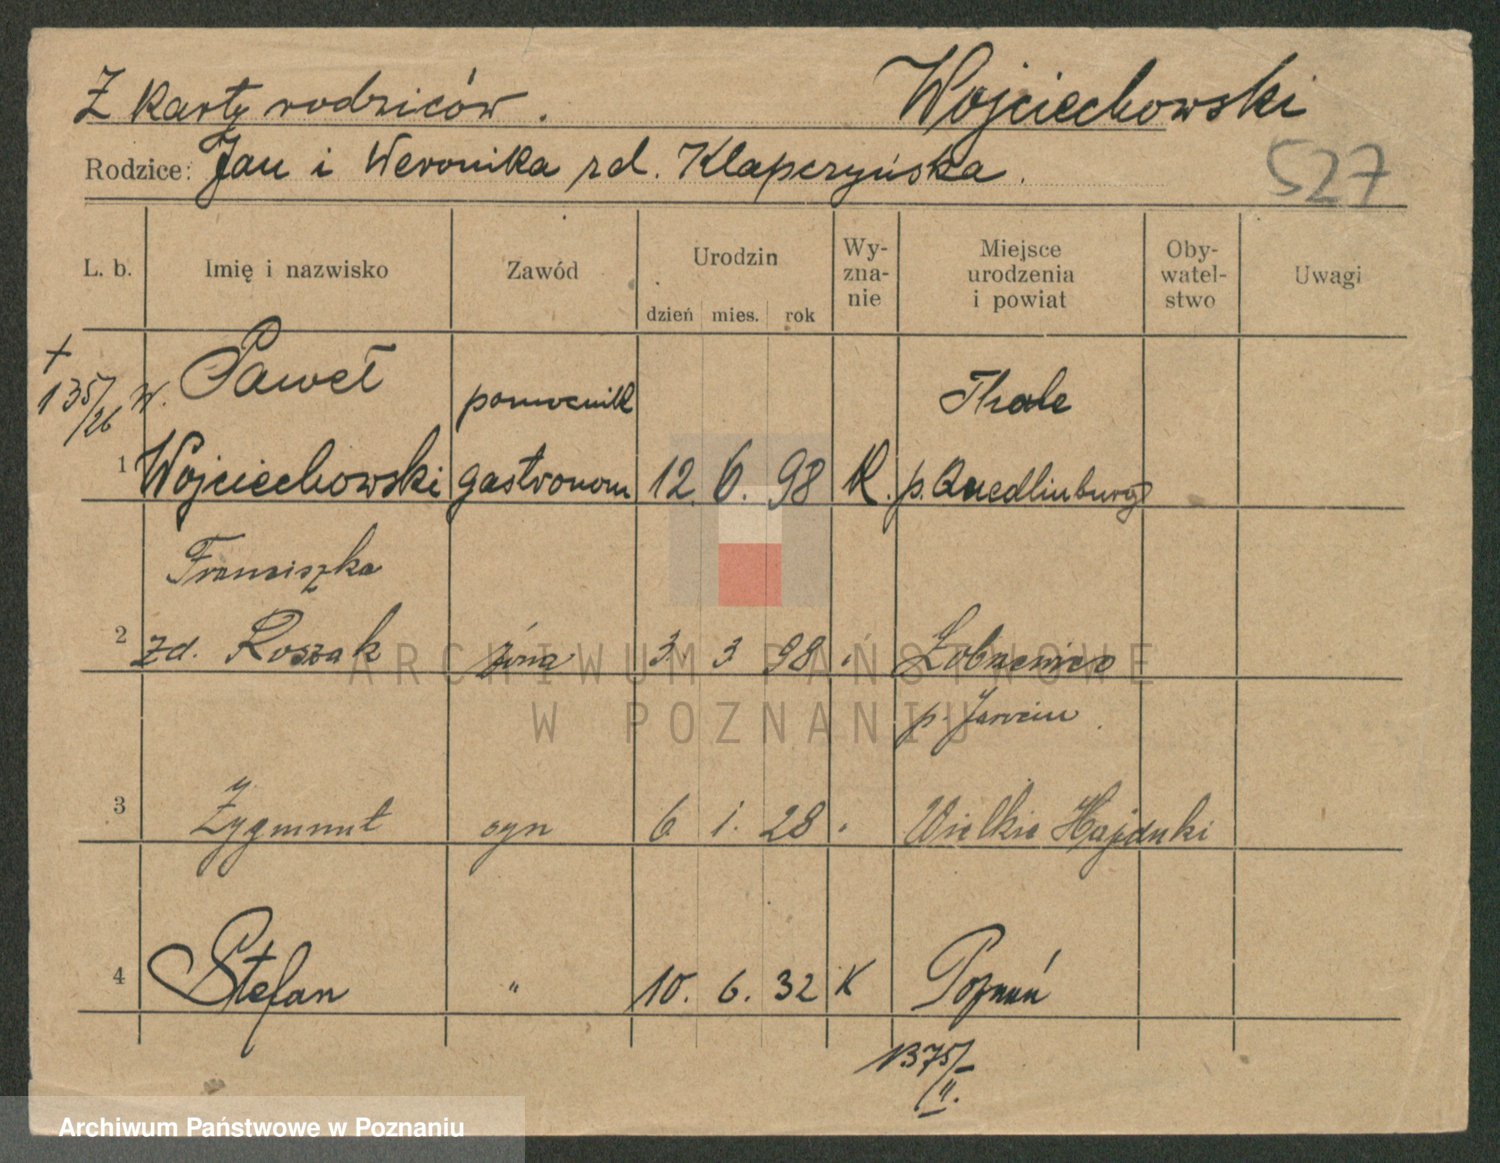 Z karty rodziców. Wojciechowski
Rodzice: Jan i Weronika zd. Klapczyńska.
527
L. b. Imię i nazwisko Zawód Urodzin dzień mies. rok Wy-zna-nie Miejsce urodzenia i powiat Oby-watel-stwo Uwagi
+ Paweł pomocnik Thale
135/26 W.
1 Wojciechowski gastronom 12. 6. 98 R. p. Quedlinburg
Franciszka
2 zd. Roszak żona 3. 3 98 "
p. Jarocin
3 Zygmunt syn 6. 1. 28 " Wielkie Hajduki
4 Stefan " 10. 6. 32 K Poznań
1375/II.
ARCHIWUM PAŃSTWOWE
W POZNANIU
Archiwum Państwowe w Poznaniu